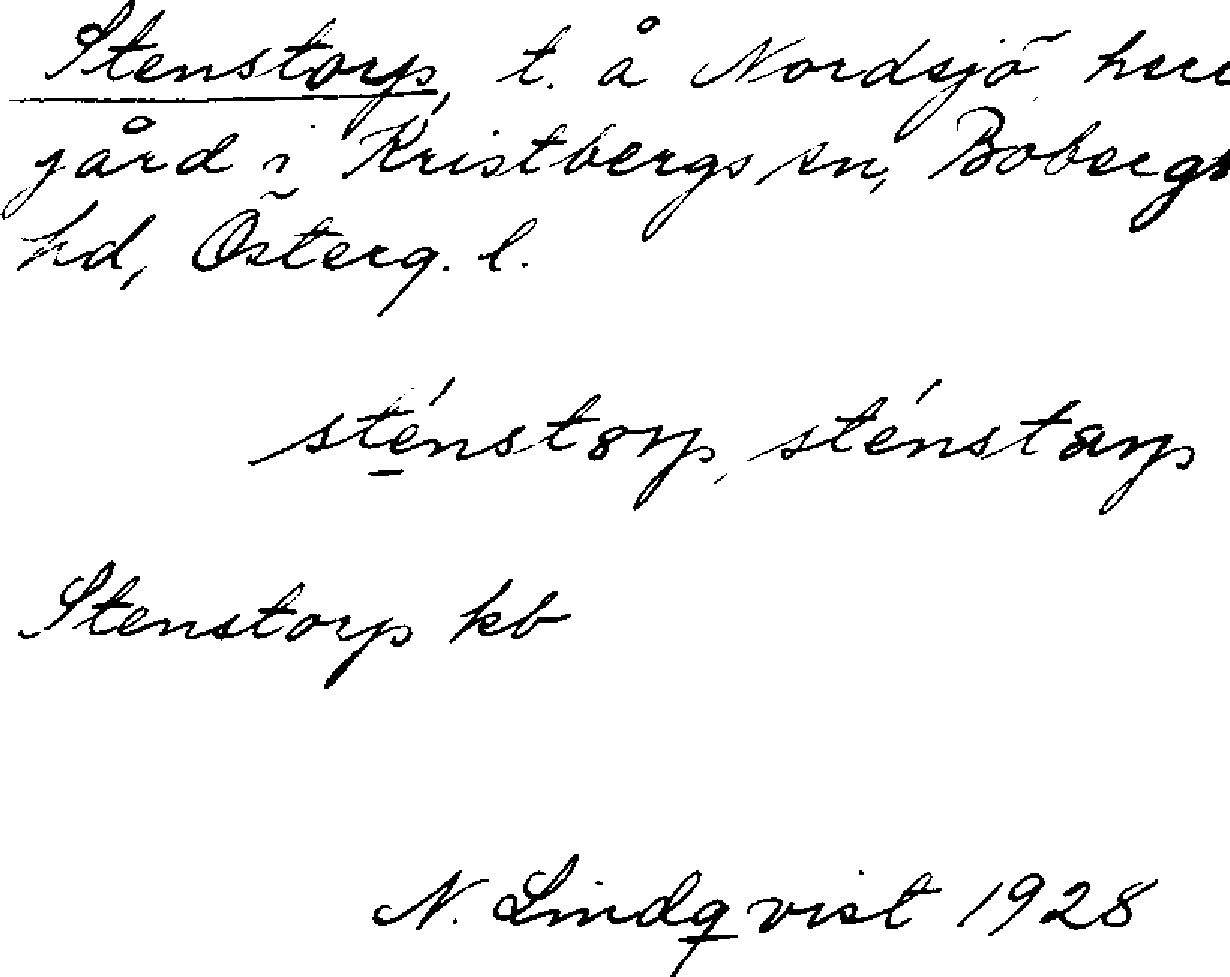 Stenstorp, t. å Nordsjö herr
gård i Kristbergs sn, Bobergs
hd, Österg. l.
sténstorp, sténstarp
Stenstorp kb
N. Lindqvist 1928